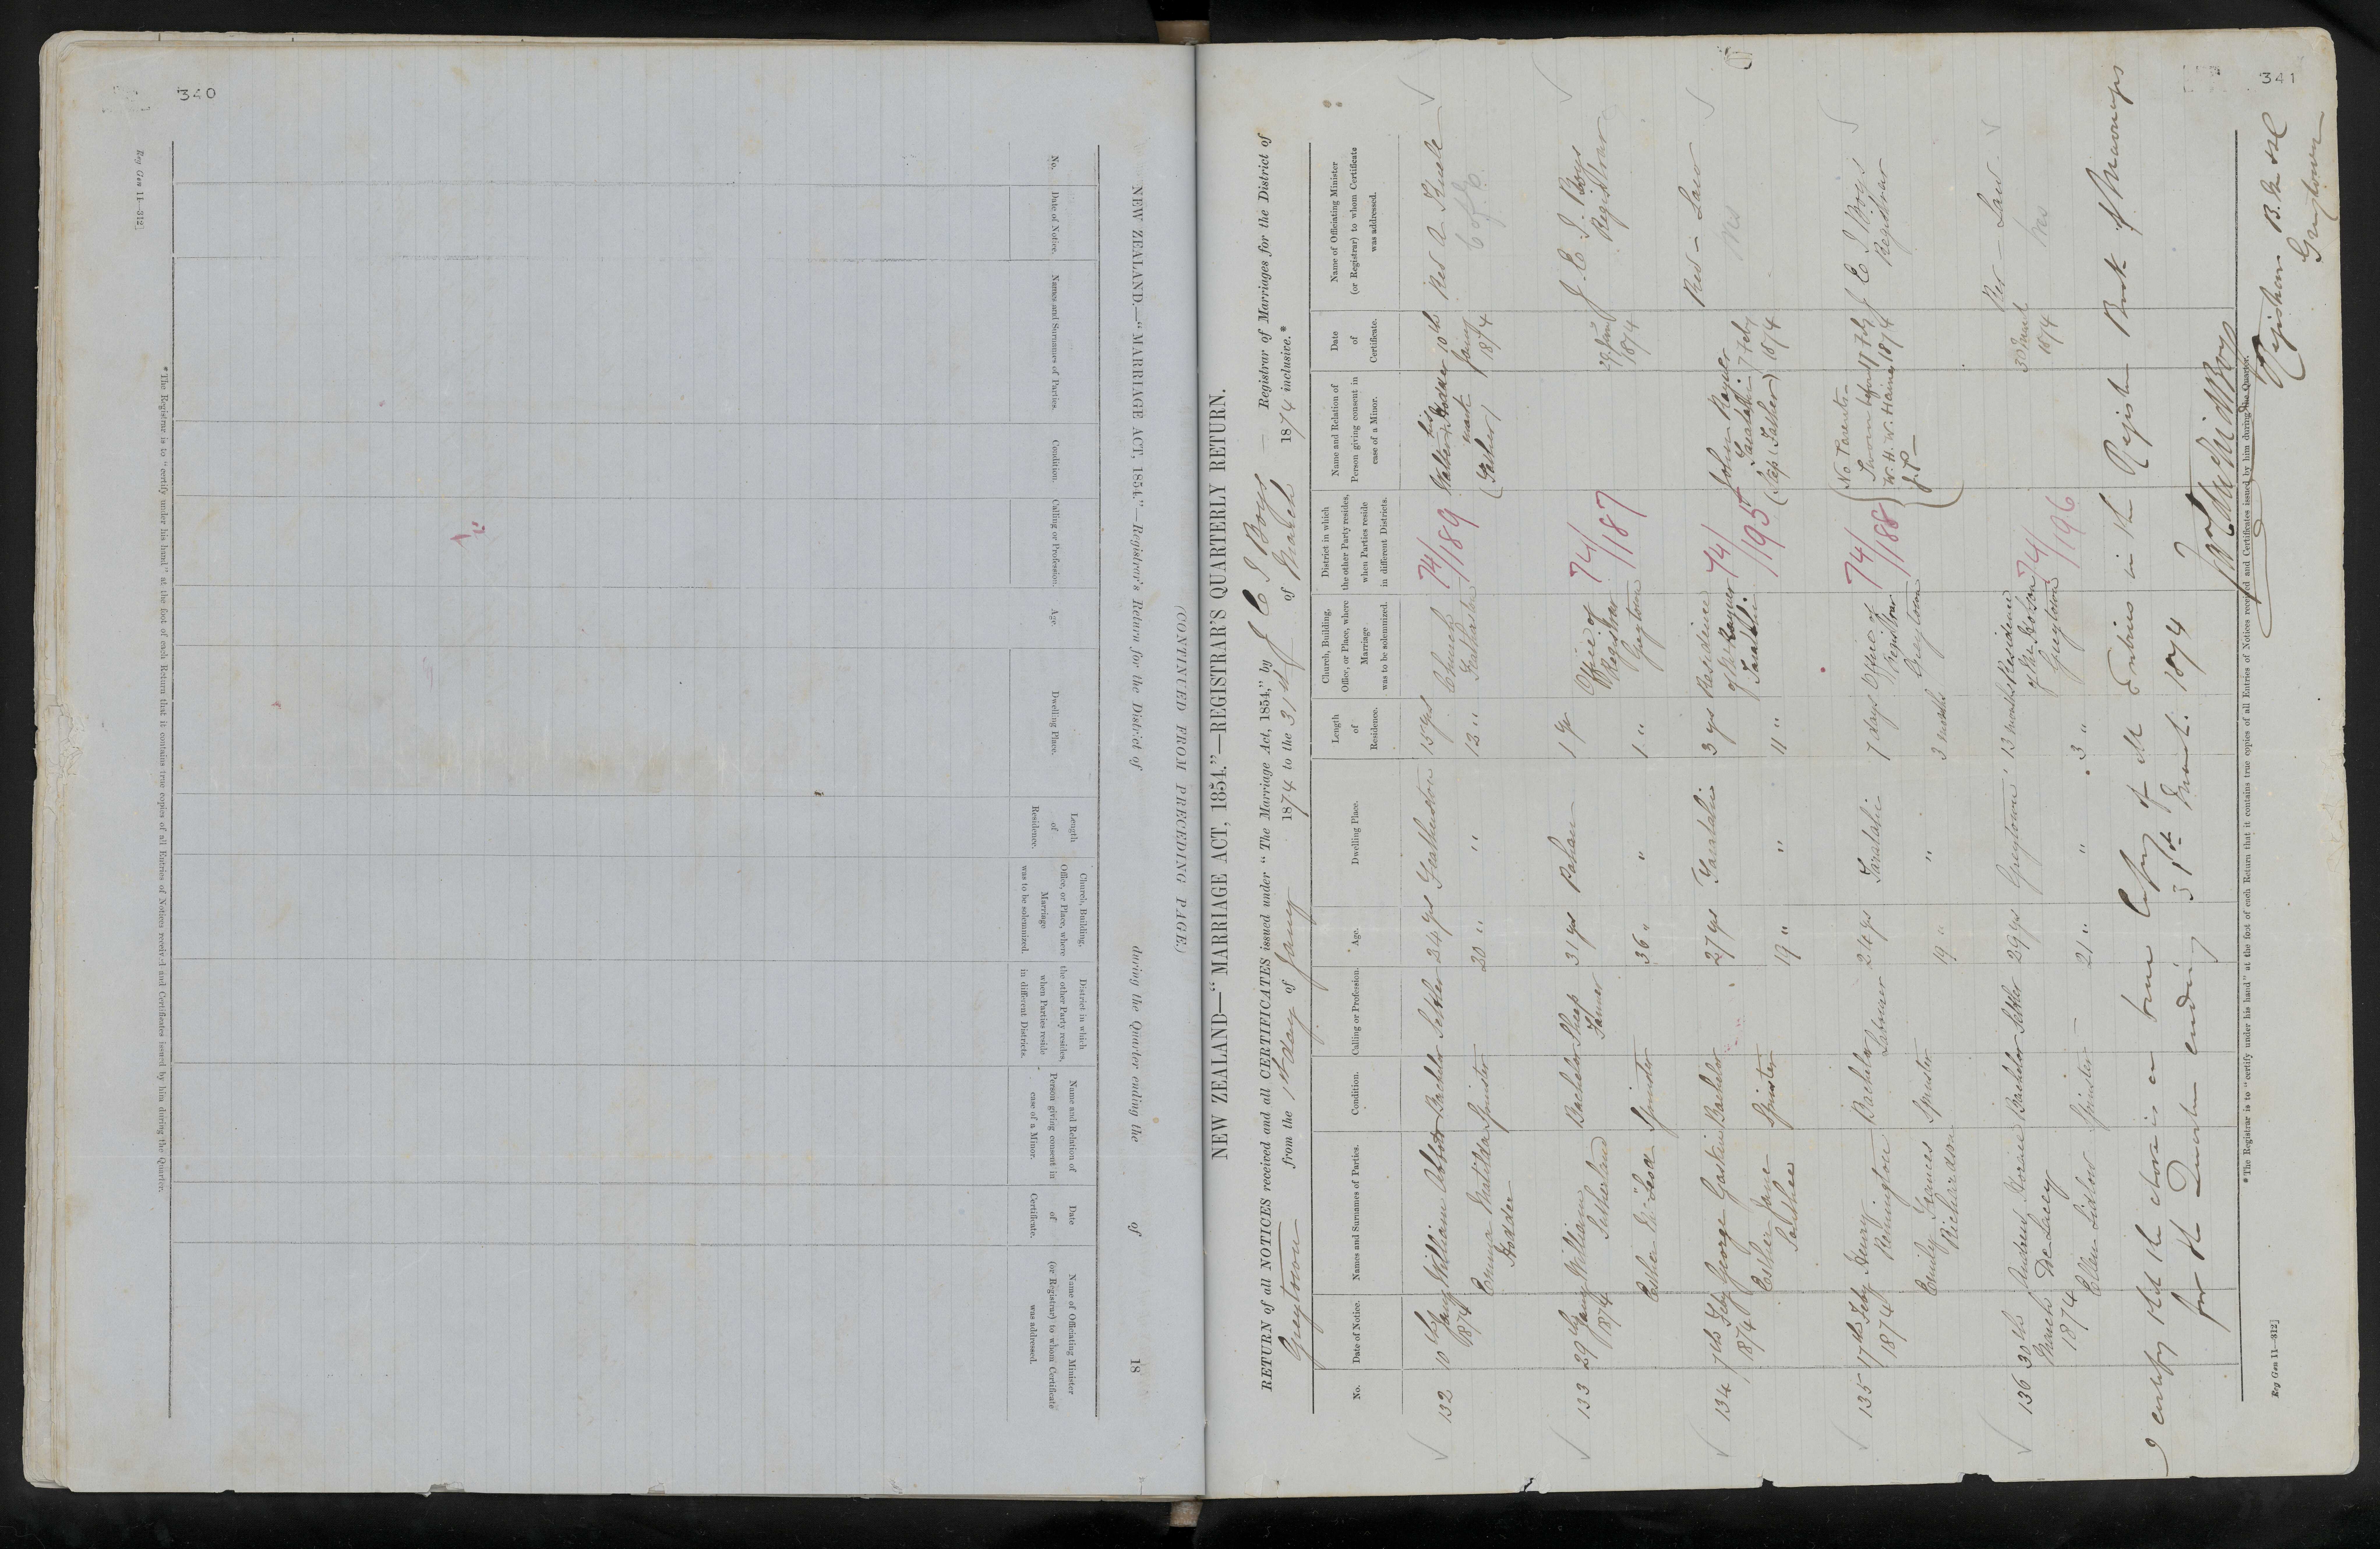 340
Reg Gen 11—312]
NEW ZEALAND.—"MARRIAGE ACT, 1854."—Registrar's Return for the District of during the Quarter ending the of 18
(CONTINUED FROM PRECEDING PAGE.)
No.
Date of Notice.
Names and Surnames of Parties.
Condition.
Calling or Profession.
Age.
Dwelling Place.
Length
of
Residence.
Church, Building,
Office, or Place, where
Marriage
was to be solemnized.
District in which
the other Party resides,
when Parties reside
in different Districts.
Name and Relation of
Person giving consent in
case of a Minor.
Date
of
Certificate.
Name of Officiating Minister
(or Registrar) to whom Certificate
was addressed.
*The Registrar is to "certify under his hand" at the foot of each Return that it contains true copies of all Entries of Notices received and Certificates issued by him during the Quarter.
341
NEW ZEALAND—"MARRIAGE ACT, 1854."—REGISTRAR'S QUARTERLY RETURN.
RETURN of all NOTICES received and all CERTIFICATES issued under "The Marriage Act, 1854," by J C I Boys — Registrar of Marriages for the District of
Greytown from the 1st day of Jany 1874 to the 31st of March 1874 inclusive.*
No.
Date of Notice.
Names and Surnames of Parties.
Condition.
Calling or Profession.
Age.
Dwelling Place.
Length
of
Residence.
Church, Building,
Office, or Place, where
Marriage
was to be solemnized.
District in which
the other Party resides,
when Parties reside
in different Districts.
Name and Relation of
Person giving consent in
case of a Minor.
Date
of
Certificate.
Name of Officiating Minister
(or Registrar) to whom Certificate
was addressed.
132 10th William Abbott Bachelor Settler 24 yrs Featherston 15 yrs Church 74/189 his 10th Rev A
Jany 1874 Emma Matilda Spinster 20 " " 12 " Featherston mark Jany 1874 C of E
Hodder (Father)
133 29th William Bachelor Sheep 31 yrs Pahau 1 yr Office of 74/187 29 Jany J. C. I. Boys
Jany 1874 Sutherland Farmer Registrar 1874 Registrar
Esther McLeod Spinster 36 " " 1 " Greytown
134 7th Feby George Gaskin Bachelor 27 yrs Taratahi 3 yrs Residence 74/195 John Rayner 7 Feby Rev — Law
1874 Esther Jane Spinster 19 " " 11 " of Mr Rayner Taratahi 1874 Wes
Taratahi (Step Father)
135 17th Feby Henry Bachelor Labourer 24 yrs Taratahi 7 days Office of 74/188 No Parents 17 Feby J C I Boys
1874 Remington Registrar Sworn before 1874 Registrar
Emily Frances Spinster 19 " " 3 months Greytown J.P
Richardson
136 30th Andrew Bachelor Settler 29 yrs Greytown 13 months Residence 74/196 30 March Rev — Law
March De Lacey of Greytown 1874 Wes
1874 Ellen Spinster — 21 " " 3 "
I certify that the above is a true Copy of the Entries in the Register Book of Marriages
for the Quarter ending 31st March 1874
Registrar B. & M
Greytown
*The Registrar is to "certify under his hand" at the foot of each Return that it contains true copies of all Entries of Notices received and Certificates issued by him during the Quarter.
Reg Gen 11—312]